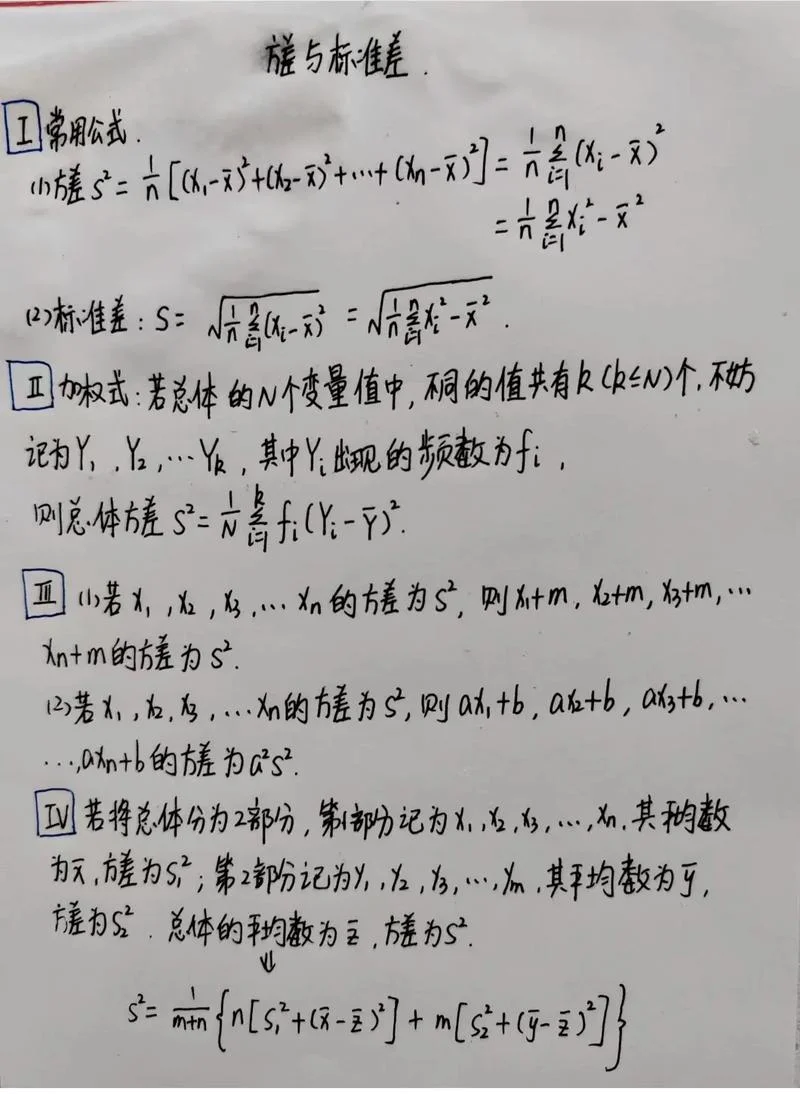 方差与标准差.
Ⅰ 常用公式.
(1)方差 S² = 1/n [(x₁-x̄)²+(x₂-x̄)²+…+(xₙ-x̄)²] = 1/n ∑ⁿᵢ₌₁ (xᵢ-x̄)²
= 1/n ∑ⁿᵢ₌₁ xᵢ² - x̄²
(2)标准差: S = √(1/n ∑ⁿᵢ₌₁ (xᵢ-x̄)²) = √(1/n ∑ⁿᵢ₌₁ xᵢ² - x̄²).
Ⅱ 加权式:若总体的N个变量值中,不同的值共有k(k≤N)个,不妨
记为Y₁,Y₂,…Yₖ,其中Yᵢ出现的频数为fᵢ,
则总体方差 S² = 1/N ∑ᵏᵢ₌₁ fᵢ(Yᵢ-Ȳ)².
Ⅲ (1)若x₁,x₂,x₃,…xₙ的方差为S²,则x₁+m,x₂+m,x₃+m,…
xₙ+m的方差为S².
(2)若x₁,x₂,x₃,…xₙ的方差为S²,则ax₁+b,ax₂+b,ax₃+b,…
…,axₙ+b的方差为a²S².
Ⅳ 若将总体分为2部分,第1部分记为x₁,x₂,x₃,…,xₙ,其平均数
为x̄,方差为S₁²;第2部分记为y₁,y₂,y₃,…,yₘ,其平均数为ȳ,
方差为S₂².总体的平均数为z̄,方差为S².
⇓
S² = 1/(m+n) {n[S₁²+(x̄-z̄)²]+m[S₂²+(ȳ-z̄)²]}